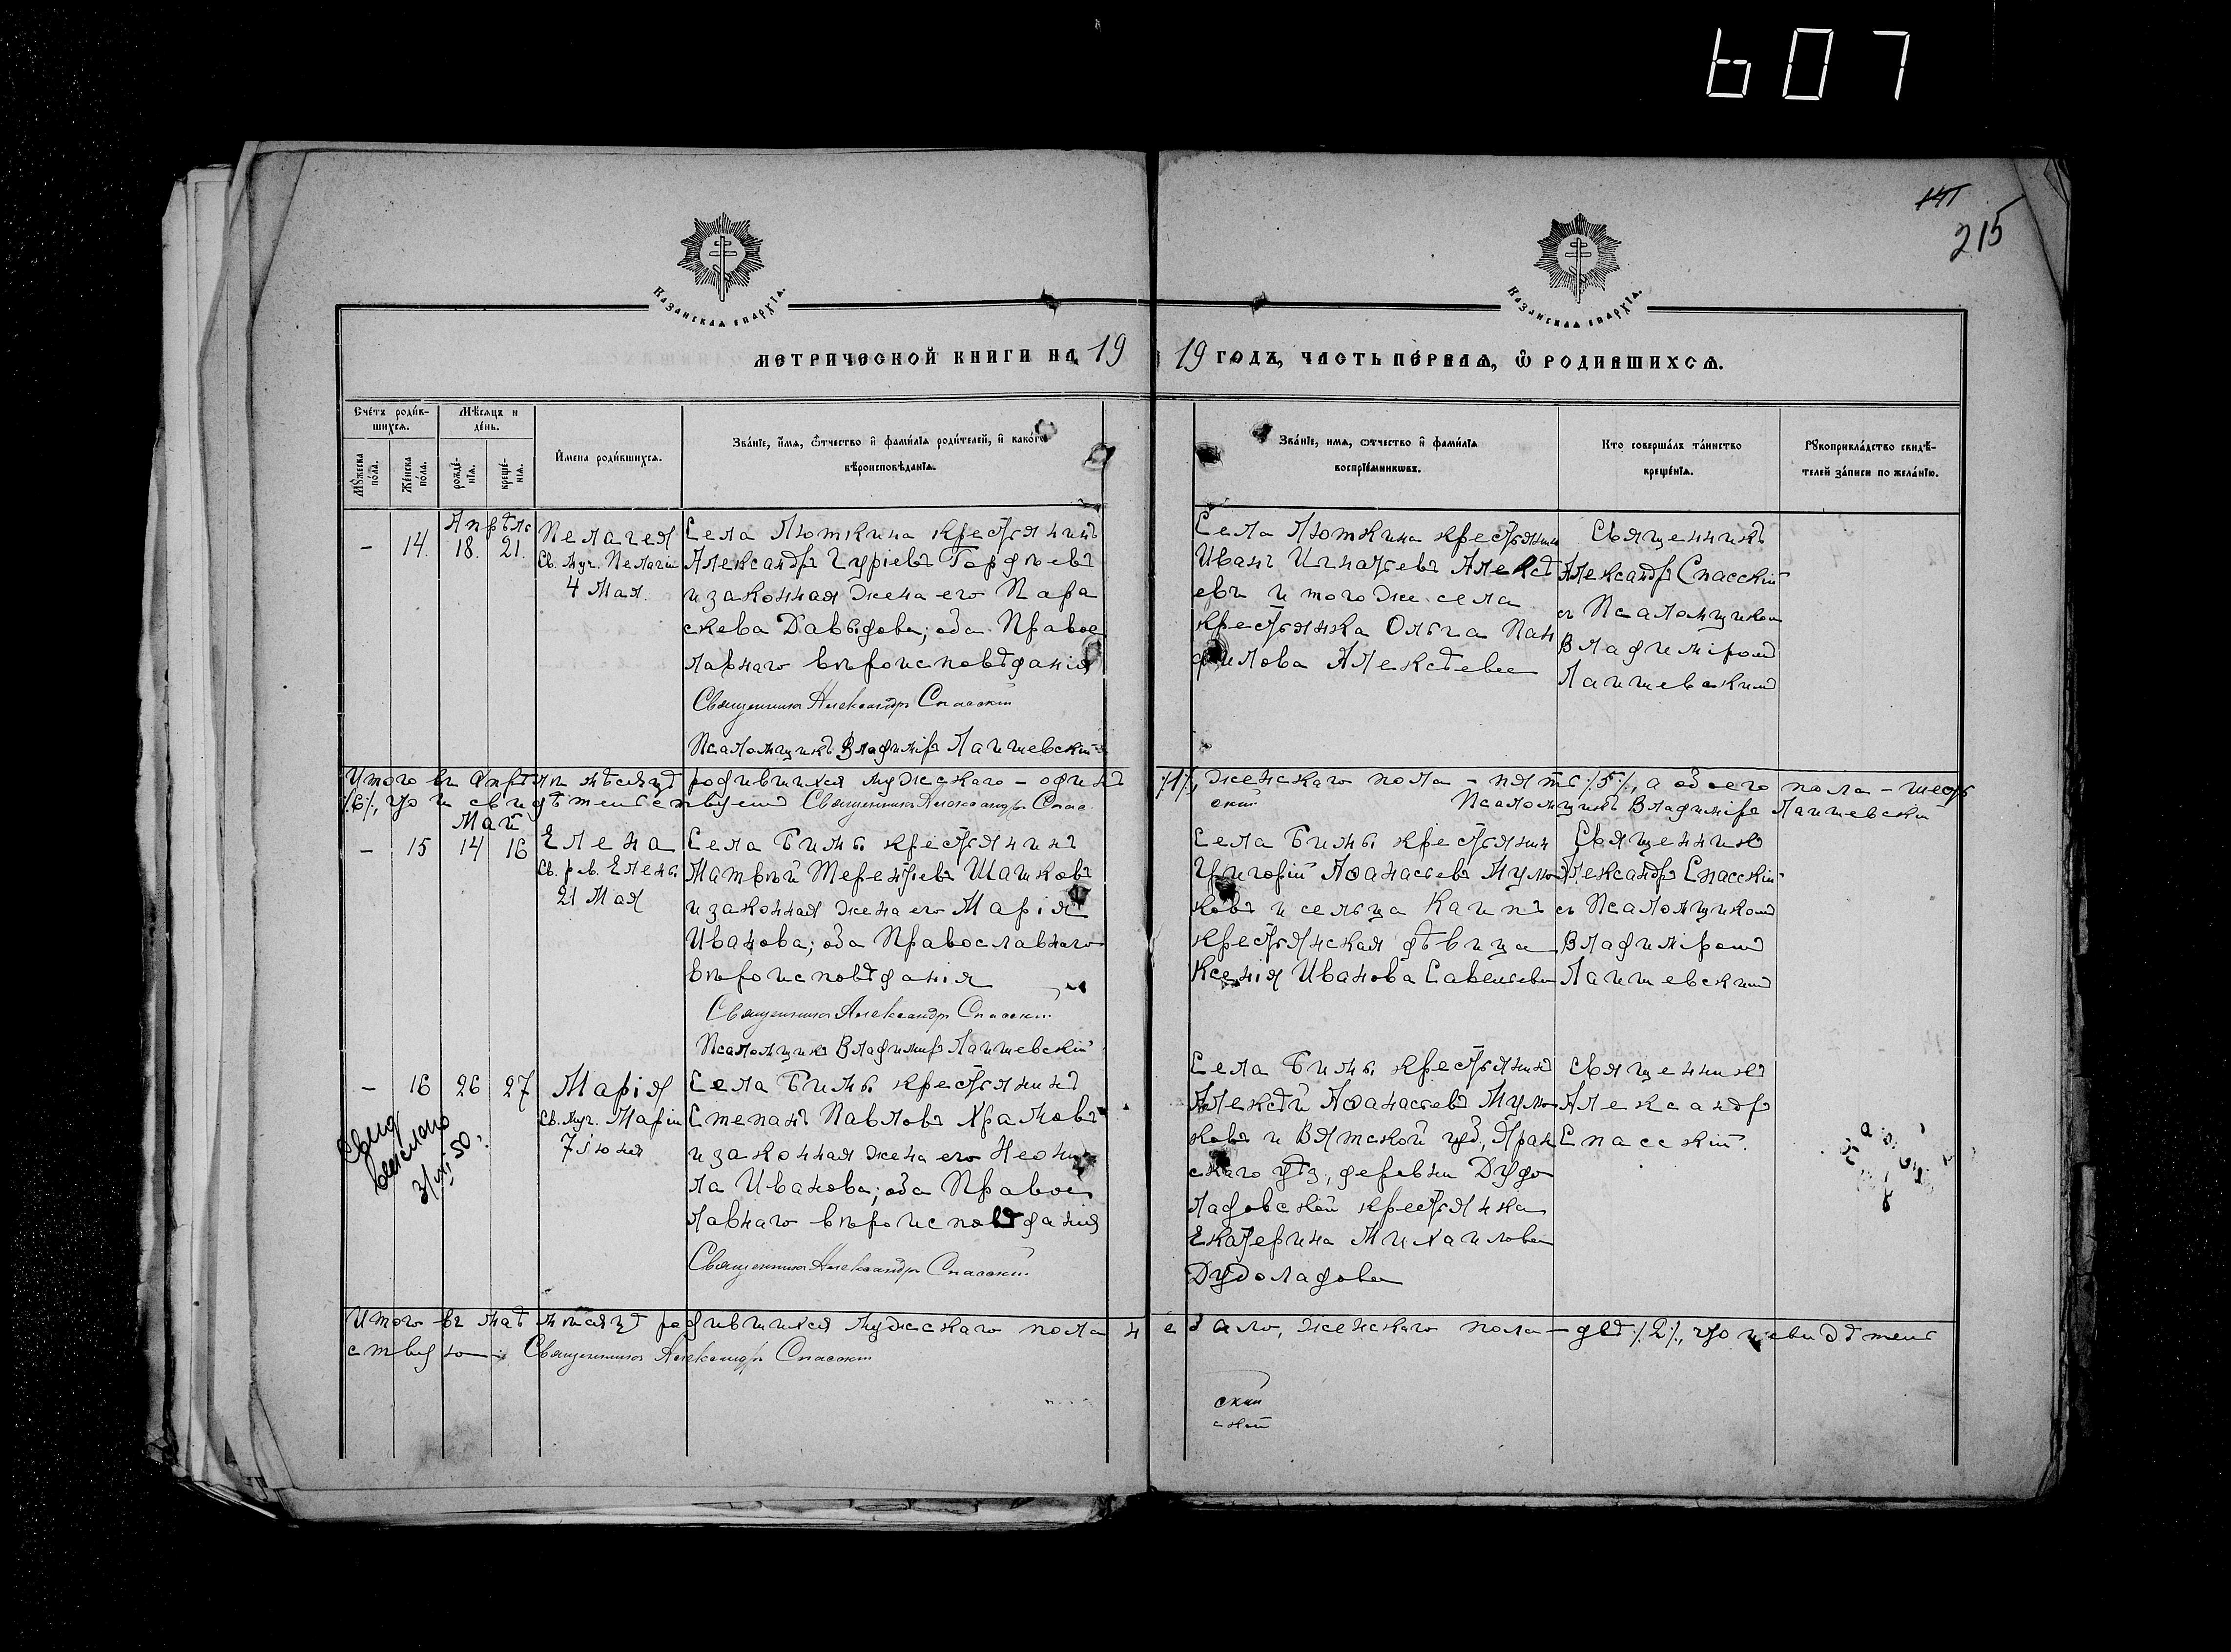 607
141
215
Казанская епархїа.
Казанская епархїа.
Метрической книги на 1919 годъ, часть первая, ѿ родившихся.
Счетъ родив-
шихся.
Мѣсяцъ и
день.
Мужеска
пола.
Женска
пола.
рожде-
нїя.
креще-
нїя.
Имена родившихся.
Званїе, имя, ѿтчество и фамилїя родителей, и какого
вѣроисповѣданїя.
Званїе, имя, отчество и фамилїя
воспрїемниковъ.
Кто совершалъ таинство
крещенїя.
Рукоприкладство свидѣ-
телей записи по желанїю.
Апрѣль
– 14. 18. 21.
Пелагея
Св. муч. Пелагіи
4 Мая.
Села Люткина крестьянинъ
Александръ Гуріевъ Гордѣевъ
и законная жена его Пара
скева Давыдова; оба Правос
лавнаго вѣроисповѣданія
Священникъ Александръ Спасскій
Псаломщикъ Владиміръ Лаишевскій
Села Люткина крестьянин
Иванъ Игнатьевъ Алексѣ
евъ и того же села
крестьянка Ольга Пан
филова Алексѣева
Священникъ
Александръ Спасскій
съ Псаломщикомъ
Владиміромъ
Лаишевскимъ
Итого въ Апрѣлѣ мѣсяцѣ родившихся мужскаго – одинъ /1/, женскаго пола – пять /5/, а обоего пола – шесть
/6/, что и свидѣтельствуемъ Священникъ Александръ Спас
ский
Псаломщикъ Владиміръ Лаишевскій
Май
– 15 14 16
Елена
Св. рав. Елены
21 Мая
Села Бимы крестьянинъ
Матвѣй Терентьевъ Шашковъ
и законная жена его Марія
Иванова; оба Православнаго
вѣроисповѣданія
Священникъ Александръ Спасскій
Псаломщикъ Владиміръ Лаишевскій
Села Бимы крестьянин
Григорій Афанасьевъ Мулю
ковъ и сельца Каипъ
крестьянская дѣвица
Ксенія Иванова Савельева
Священникъ
Александръ Спасскій
съ Псаломщикомъ
Владиміромъ
Лаишевскимъ
– 16 26 27
Марія
Св. муч. Маріи
7 іюня
Свид
выслано
3/XI 50.
Села Бимы крестьянинъ
Степанъ Павловъ Храмовъ
и законная жена его Неони
ла Иванова; оба Правос
лавнаго вѣроисповѣданія
Священникъ Александръ Спасскій
Села Бимы крестьянинъ
Алексѣй Афанасьевъ Мулю
ковъ и Вятской губ., Яран
скаго уѣз., деревни Дудо
ладовской крестьянка
Екатерина Михаилова
Дудоладова
Священникъ
Александръ
Спасскій
Итого въ маѣ мѣсяцѣ родившихся мужскаго пола не было, женскаго пола – двѣ /2/, что и свидѣтель
ствую: Священникъ Александръ Спасскій
ский
ской